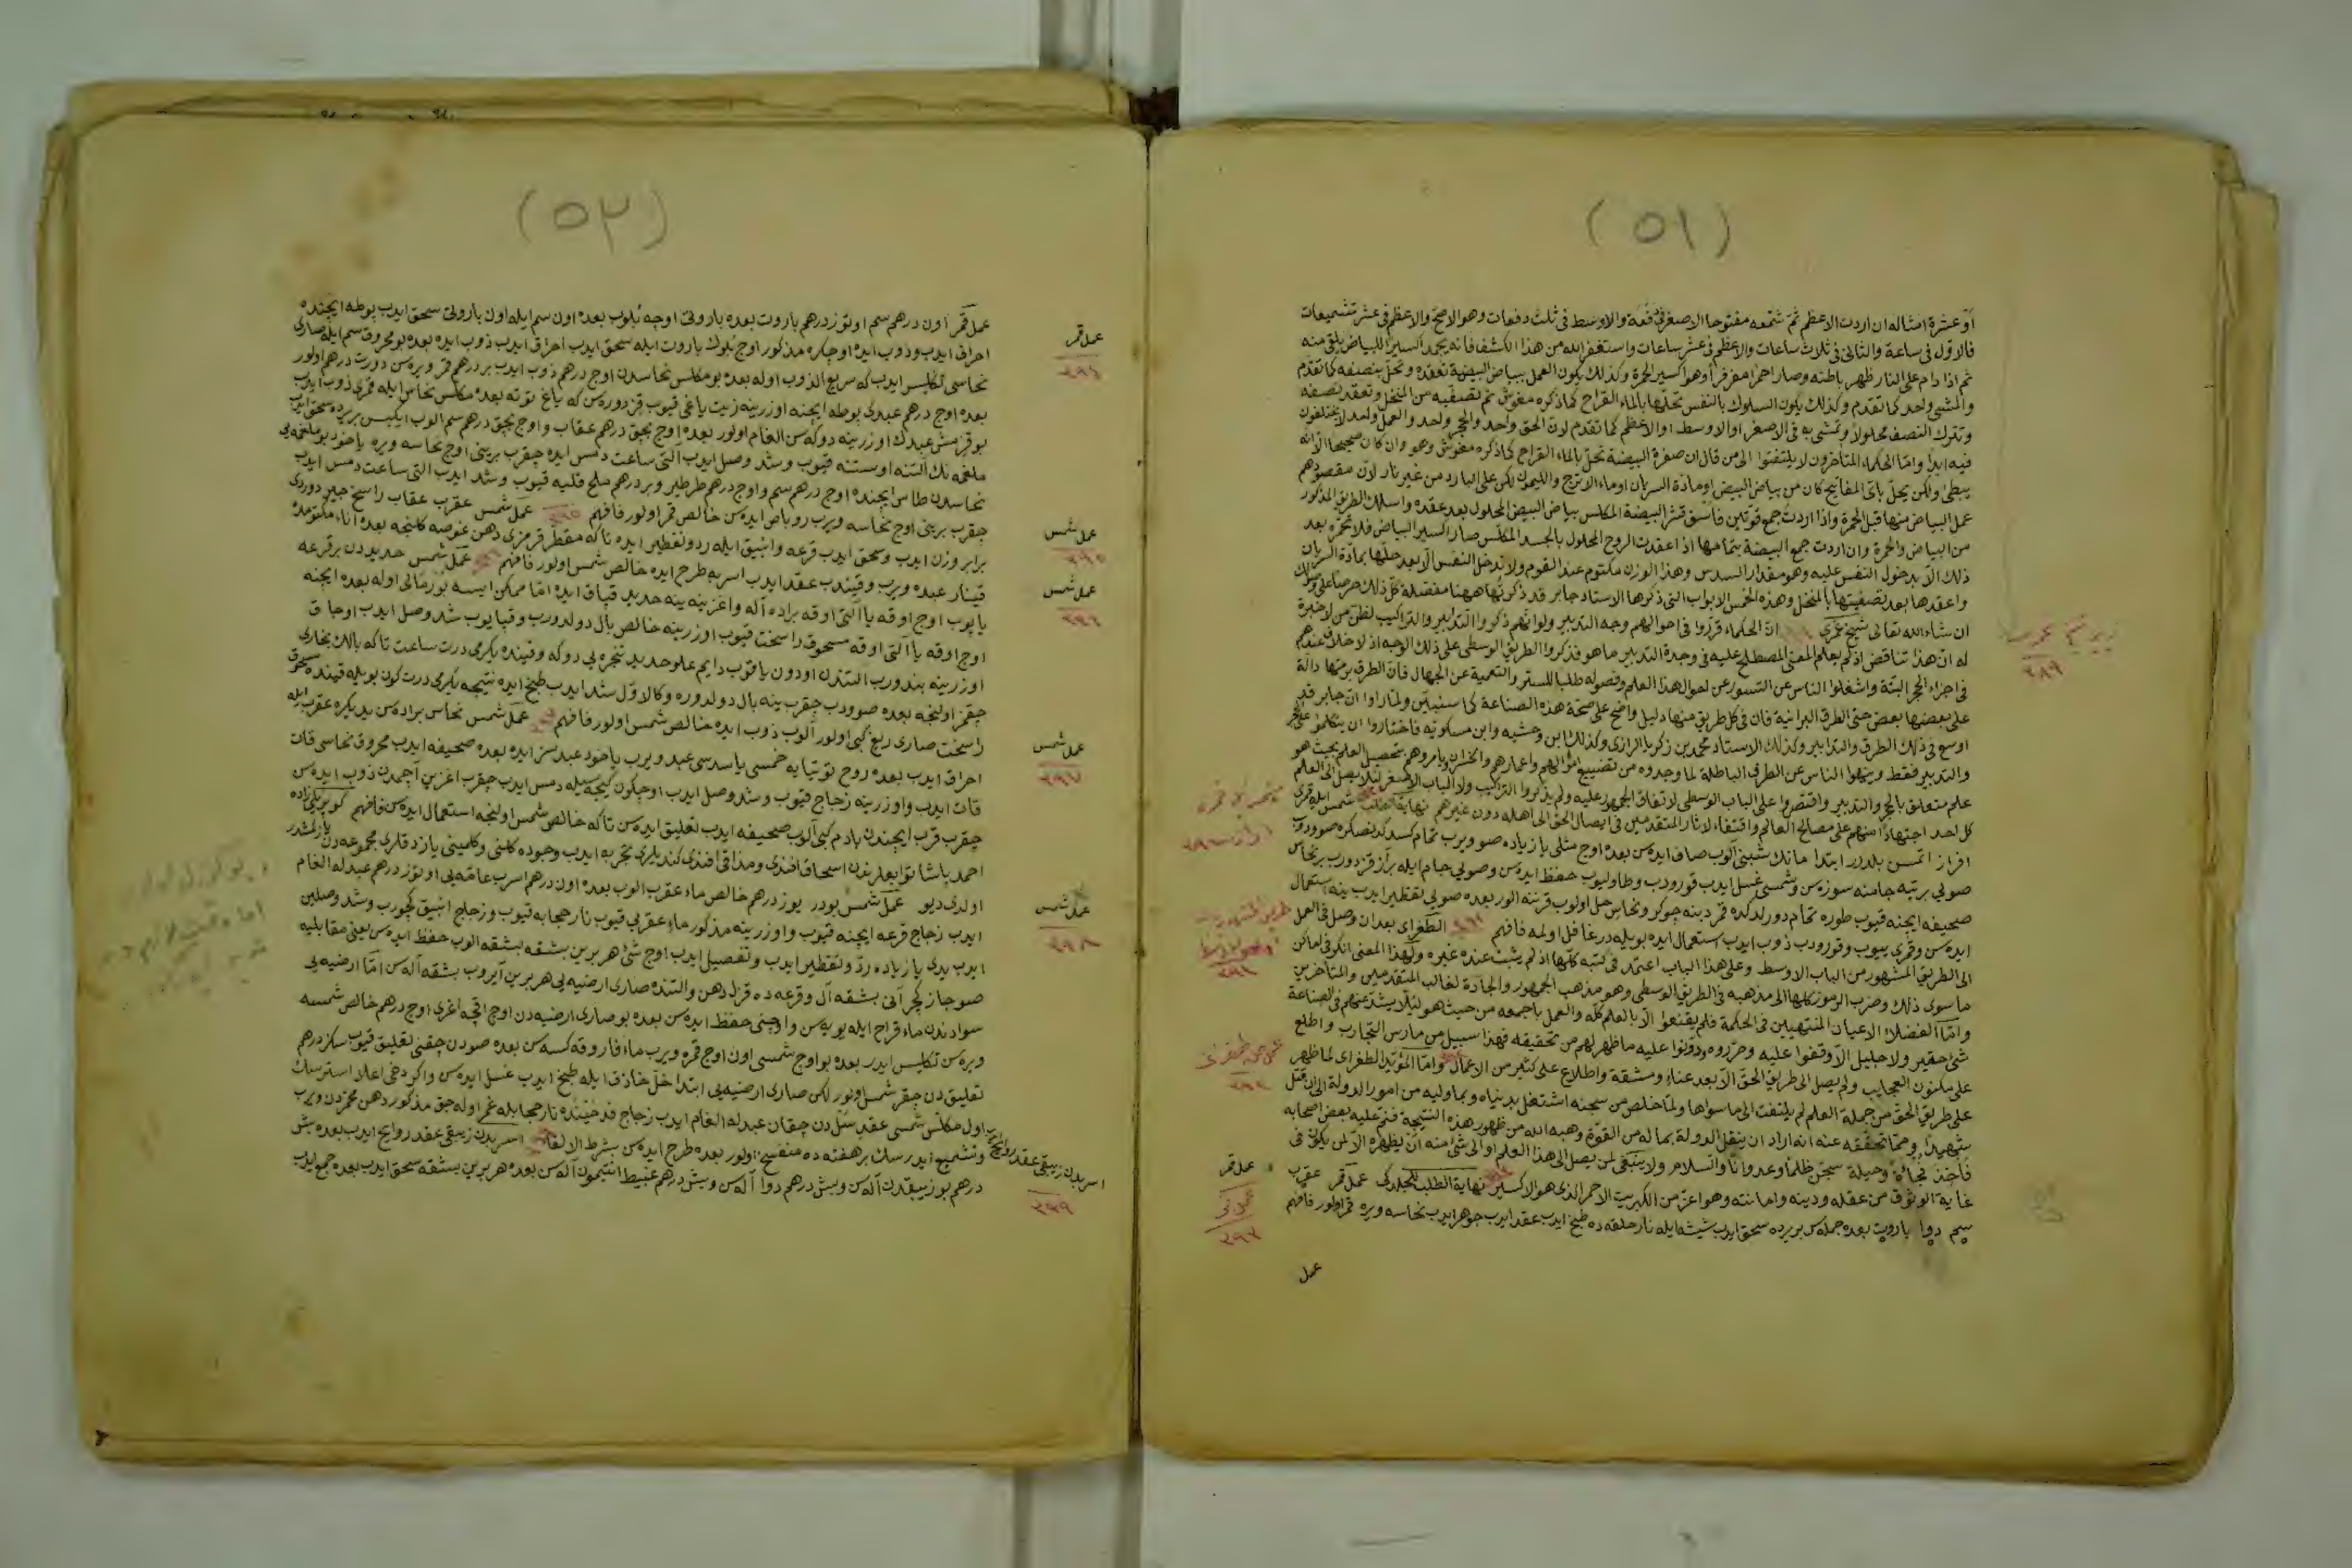 (٥١)
او عشرة امثاله ان اردت الاعظم ثم شمعه مفتوحا الاصغر في دفعة والاوسط في ثلث دفعات وهو الاصح والاعظم في عشر تشميعات
فالاول في ساعة والثاني في ثلاث ساعات والاعظم في عشر ساعات واستغفر الله من هذا الكشف فانه يجمد اكسير البياض يلقى منه
ثم اذا دام على النار ظهر باطنه وصار احمر وهو اكسير الحمرة وكذلك يكون العمل ببياض البيضة تعقده وتحل بنصفه كما تقدم
والمشي واحد كما تقدم وكذلك يكون السلوك بالنفس تحلها بالماء القراح كما ذكره مغوش ثم تصفيه من المنخل وتعقد نصفه
وتترك النصف محلولا وتمشي به في الاصغر او الاوسط او الاعظم كما تقدم لان الحق واحد والحجر واحد والعمل واحد لا يختلفون
فيه ابدا واما الحكماء المتأخرون لا يلتفتوا الى من قال ان صفرة البيضة تحل بالماء القراح كما ذكره مغوش وهو وان كان صحيحا الا انه
يبطئ ولكن يحل باقي المفاتيح كان من بياض البيض او مادة السريان او ماء الاترج والليمون لكن على البارد من غير نار لان مقصودهم
عمل البياض منها قبل الحمرة واذا اردت جمع قوتين فاسق قشر البيضة المكلس ببياض البيض المحلول بعد عقده واسلك الطريق المذكور
من البياض والحمرة وان اردت جمع البيضة بتمامها اذا عقدت الروح المحلول بالجسد المكلس صار اكسير البياض فلا تحمره بعد
ذلك الا بدخول النفس عليه وهو مقدار السدس وهذا الوزن مكتوم عند القوم ولا تدخل النفس الا بعد حلها بمادة السريان
واعقدها بعد تصفيتها بالمنخل وهذه الخمس الابواب التي ذكرها الاستاد جابر قد ذكرتها ههنا مفصلة كل ذلك حرصا على
ان شاء الله تعالى ان الحكماء قرروا في احوالهم وجه التدبير ولو انهم ذكروا التدابير والتراكيب لظن من لا خبرة
له ان هذا تناقض اذ لم يعلم المعنى المصطلح عليه في وحدة التدبير ما هو فذكروا الطريق الوسطى على ذلك الوجه اذ لا خلاف عندهم
في اجزاء الحجر البتة واشغلوا الناس عن التسور عن احوال هذا العلم وفصوله طلبا للستر والتعمية عن الجهال فان الطرق برمتها دالة
على بعضها بعض حتى الطرق البرانية فان في كل طريق منها دليل واضح على صحة هذه الصناعة كما سنبين ولما راوا ان جابر قد
اوسع في ذلك الطرق والتدابير وكذلك الاستاد محمد بن زكريا الرازي وكذلك ابن وحشيه وابن مسكويه فاختاروا ان يتكلموا على الحجر
والتدبير فقط وينهوا الناس عن الطرق الباطلة لما وجدوه من تضييع اموالهم واعمارهم والخسران وأمروهم بتحصيل العلم بحيث هو
علم متعلق بالحجر والتدبير واقتصروا على الباب الوسطى لاتفاق الجمهور عليه ولم يذكروا التراكيب ولا الباب الاصغر لئلا يصل الى العلم
كل احد اجتهادا منهم على مصالح العالم واقتفاء لاثار المتقدمين في ايصال الحق الى اهله دون غيرهم نهاية الطلب شمس ايله قمرى
افراز اتمس بلدرر ابتدا مانك شبنى آلوب صاف ايده سن بعده اوج مثلى يا زياده صو ويرب تمام كسد كدنصكره صوودوب
صوفى برتبه جامنه سوزه سن وشمسى غسل ايدب قورودب وطاوليوب حفظ ايده سن وصويى جام ايله برآز قزدورب بر نحاس
صحيفه ايجنه قيوب طوره تمام دورلدكده قمر دبنه جوكر ونحاس حل اولوب قرننه الور بعده صويى تقطير ايدب ينه استعمال
ايده سن وقمرى ييوب وقورودب ذوب ايدب استعمال ايده بويله در غافل اولمه فافهم الطغراى بعد ان وصل في العمل
الى الطريق المشهور من الباب الاوسط وعلى هذا الباب اعتمد في كتبه كلها اذ لم يثبت عنده غيره ولهذا المعنى انكر في اماكن
ما سوى ذلك وضرب الرموز كلها الى مذهبه في الطريق الوسطى وهو مذهب الجمهور والجادة لغالب المتقدمين والمتأخرين
واما الفضلاء الاعيان المنتهيين في الحكمة فلم يقنعوا الا بالعلم كله والعمل باجمعه من حيث هو لئلا يشذ عنهم في الصناعة
شئ حقير ولا جليل الا وقفوا عليه وحرروه ودونوا عليه ما ظهر لهم من تحقيقه فهذا سبيل من مارس التجارب واطلع
على مكنون العجايب ولم يصل الى طريق الحق الا بعد عناء ومشقة واطلاع على كثير من الاعمال واما المؤيد الطغراى لما ظهر
على طريق الحق من جملة العلم لم يلتفت الى ما سواها ولما خلص من سجنه اشتغل بدنياه وبما وليه من امور الدولة الى ان قتل
شهيدا ومما تحققه عنه انه اراد ان ينقل الدولة بما له من القوة وهبه الله من ظهور هذه النتيجة فنم عليه بعض اصحابه
فأخذ فجأة وحيلة سجن ظلما وعدوانا والسلام ولا ينبغي لمن يصل الى هذا العلم او الى شئ منه ان يظهره الا لمن يكون في
غاية الوثوق من عقله ودينه وامانته وهو اعز من الكبريت الاحمر الذى هو الاكسير نهاية الطلب للجلدكى عمل قمر عقرب
سم دوا باروت بعده جمله سن بر يرده سحق ايدب شيشه ايله نار حلقه ده طبخ ايدب عقد ايدب جوهر ايدب نحاسه ويره قمر اولور فافهم
عمل
٢٨٩
عمل قمر
٢٩٣
(٥٢)
عمل قمر اون درهم سم اوتوز درهم باروت بعده باروتى اوجه بلوب بعده اون سم ايله اون باروتى سحق ايدب بوطه ايجنده
احراق ايدب وذوب ايده اوجكره مذكور اوج بلوك باروت ايله سحق ايدب احراق ايدب ذوب ايده بعده بو محروق سم ايله صارى
نحاسى تكليس ايدب كه سريع الذوب اوله بعده بو مكلس نحاسدن اوج درهم ذوب ايدب بر درهم قمر ويره سن دورت درهم اولور
بعده اوج درهم عبدى بوطه ايچنه اوزرينه زيت ياغى قيوب قزدوره سن كه ياغ توته بعده مكلس نحاس ايله قمرى ذوب ايدب
بو قزمش عبدك اوزرينه دوكه سن الغام اولور بعده اوج بچق درهم عقاب واوج بچق درهم سم الوب ايكيسن بر يرده سحق ايدب
ملغمه نك آلتنه اوستنه قيوب وشد وصل ايدب التى ساعت دمس ايده چقرب برينى اوج نحاسه ويره ياخود بو ملغمه يى
نحاسدن طاس ايچنده اوج درهم سم واوج درهم طرطير وبر درهم ملح قليه قيوب وشد ايدب التى ساعت دمس ايدب
چقرب برينى اوج نحاسه ويرب روباص ايده سن خالص قمر اولور فافهم عمل شمس عقرب عقاب راسخ جير دوردى
برابر وزن ايدب وسحق ايدب قرعه وانبيق ايله رد وتقطير ايده تا كه مقطر قرمزى دهن عوضه كلنجه بعده اناء مكتومده
قينار عبده ويرب وقيندب عقد ايدب اسربه طرح ايده خالص شمس اولور فافهم عمل شمس حديددن بر قرعه
ياپوب اوج اوقه يا آلتى اوقه براده آله واغزينه ينه حديد قپاق ايده اما ممكن ايسه بورمالى اوله بعده ايچنه
اوج اوقه يا آلتى اوقه مسحوق راسخت قيوب اوزرينه خالص بال دولدورب وقپايوب شد وصل ايدب اوجاق
اوزرينه بندورب التندن اودون ياقوب دايم علو حديد تنجره يى دوكه وقينده يكرمى درت ساعت تا كه بالك بخارى
چقمز اولنجه بعده صوودب چقرب ينه بال دولدوره وكالاول شد ايدب طبخ ايده نتيجه يكرمى درت كون بويله قينده مسحوق
راسخت صارى ريغ كبى اولور آلوب ذوب ايده خالص شمس اولور فافهم عمل شمس نحاس براده سن يدى كره عقرب ايله
احراق ايدب بعده روح توتيا به خمسى يا سدسى عبد ويرب ياخود عبدسز ايده بعده صحيفه ايدب محروق نحاسى قات
قات ايدب واوزرينه زجاج قيوب وشد وصل ايدب اوچكون كيجه سيله دمس ايدب چقرب اغزين آچمدن ذوب ايده سن
چقرب قرب ايچندن بادم كبى آلوب صحيفه ايدب تعليق ايده سن تا كه خالص شمس اولنجه استعمال ايده سن فافهم كوپريلى زاده
احمد پاشا توابعلرندن اسحاق افندى ومذاقى افندى كنديلرى تجربه ايدب وجوده كلمش وكلمينى يازدقلرى مجموعه دن يازلمشدر
اولدى ديو عمل شمس بودر يوز درهم خالص ماء عقرب الوب بعده اون درهم اسرب عامه يى اوتوز درهم عبدله الغام
ايدب زجاج قرعه ايچنه قيوب واوزرينه مذكور ماء عقربى قيوب نار حجابه قيوب وزجاج انبيق كچورب وشد وصلين
ايدب يدى يا زياده رد وتقطير ايدب وتفصيل ايدب اوج شئ هر برين بشقه بشقه الوب حفظ ايده سن يعنى مقابليه
صوجازكچر آنى بشقه آل وقرعه ده قزل دهن والتنده صارى ارضيه يى هر برين آيروب بشقه آله سن اما ارضيه يى
سوادندن ماء قراح ايله يويه سن واوچنى حفظ ايده سن بعده بو صارى ارضيه دن اوج اقچه اغرى اوج درهم خالص شمسه
ويره سن تكليس ايدر بعده بو اوج شمسى اون اوج قمره ويرب ماء فاروقه كسه سن بعده صودن چقنى تعليق قيوب سكز درهم
تعليق دن چقر شمس اولور لكن صارى ارضيه يى ابتدا خل خاذق ايله طبخ ايدب غسل ايده سن واكر دخى اعلا استرسك
اول مكلس شمسى عقد سلدن چقان عبدله الغام ايدب زجاج قدحينده نار حجابله غمر اوله جق مذكور دهن محمردن ويرب
وتشميع ايدرسك بر هفته ده منفتح اولور بعده طرح ايده سن بشرط الالغام اسربدن زيبقى عقد روايح ايدب بعده بش
درهم بو زيبقدن آله سن وبش درهم دوا آله سن وبش درهم عنبيط انتيمون آله سن بعده هر برين بشقه سحق ايدب بعده جمع ايدب
عمل قمر
٢٩٤
عمل شمس
٢٩٥
عمل شمس
٢٩٦
عمل شمس
٢٩٧
عمل شمس
٢٩٨
اسربدن زيبقى عقد روايح
٢٩٩